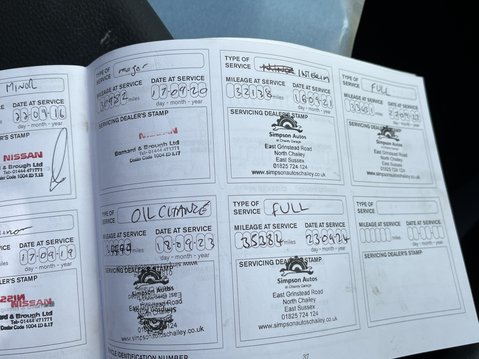 MINOR
DATE AT SERVICE
22 09 16
day - month - year
DEALER'S STAMP
NISSAN
& Brough Ltd
Tel: 01444 471771
TYPE OF
SERVICE
major
MILEAGE AT SERVICE
miles
DATE AT SERVICE
17 09 20
day - month - year
SERVICING DEALER'S STAMP
NISSAN
Barnard & Brough Ltd
Tel: 01444 471771
TYPE OF
SERVICE
INTERIM
MILEAGE AT SERVICE
32138 miles
DATE AT SERVICE
16 09 21
day - month - year
SERVICING DEALER'S STAMP
Simpson Autos
at Chailey Garage
East Grinstead Road
North Chailey
East Sussex
01825 724 124
www.simpsonautoschailey.co.uk
TYPE OF
SERVICE
FULL
MILEAGE AT SERVICE
miles
DATE AT SERVICE
day - month - year
SERVICING DEALER'S STAMP
Simpson Autos
East Grinstead Road
North Chailey
East Sussex
01825 724 124
DATE AT SERVICE
17 09 19
day - month - year
DEALER'S STAMP
NISSAN
& Brough Ltd
TYPE OF
SERVICE
OIL CHANGE
MILEAGE AT SERVICE
miles
DATE AT SERVICE
18 09 23
day - month - year
SERVICING DEALER'S STAMP
01825 724 124
www.simpsonautoschailey.co.uk
TYPE OF
SERVICE
FULL
MILEAGE AT SERVICE
35384 miles
DATE AT SERVICE
23 09 24
day - month - year
SERVICING DEALER'S STAMP
Simpson Autos
at Chailey Garage
East Grinstead Road
North Chailey
East Sussex
01825 724 124
www.simpsonautoschailey.co.uk
TYPE OF
SERVICE
MILEAGE AT SERVICE
miles
DATE AT SERVICE
day - month - year
SERVICING DEALER'S STAMP
VEHICLE IDENTIFICATION NUMBER
37